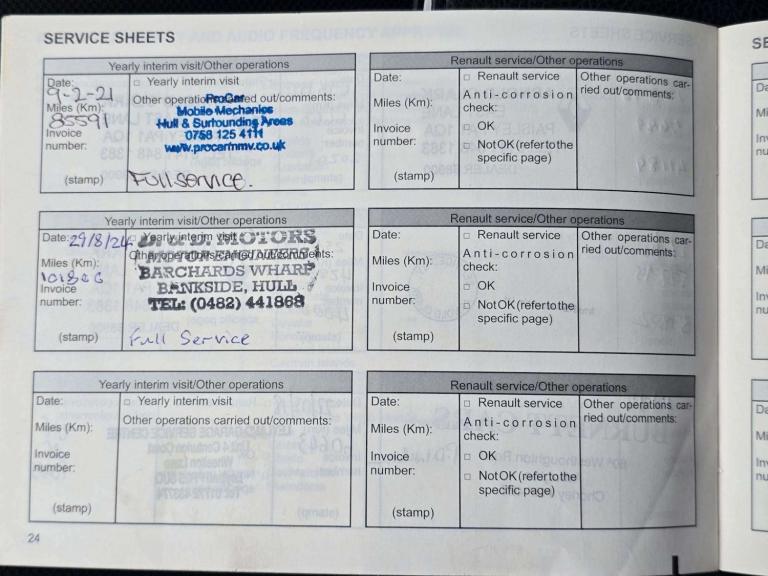 SERVICE SHEETS
Yearly interim visit/Other operations
Date:
9-2-21
Miles (Km):
85591
Invoice
number:
(stamp)
Yearly interim visit
Other operations carried out/comments:
ProCar
Mobile Mechanics
Hull & Surrounding Areas
0758 125 4111
www.procarhmv.co.uk
Full service.
Renault service/Other operations
Date:
Miles (Km):
Invoice
number:
(stamp)
Renault service
Anti-corrosion
check:
OK
Not OK (refer to the
specific page)
Other operations car-
ried out/comments:
Yearly interim visit/Other operations
Date: 29/8/24
Miles (Km):
Invoice
number:
(stamp)
Yearly interim visit
Other operations carried out/comments:
MOTORS
MOTOR ENGINEERS
BARCHARDS WHARF
BANKSIDE, HULL
TEL: (0482) 441868
Full Service
Renault service/Other operations
Date:
Miles (Km):
Invoice
number:
(stamp)
Renault service
Anti-corrosion
check:
OK
Not OK (refer to the
specific page)
Other operations car-
ried out/comments:
Yearly interim visit/Other operations
Date:
Miles (Km):
Invoice
number:
(stamp)
Yearly interim visit
Other operations carried out/comments:
Renault service/Other operations
Date:
Miles (Km):
Invoice
number:
(stamp)
Renault service
Anti-corrosion
check:
OK
Not OK (refer to the
specific page)
Other operations car-
ried out/comments:
24